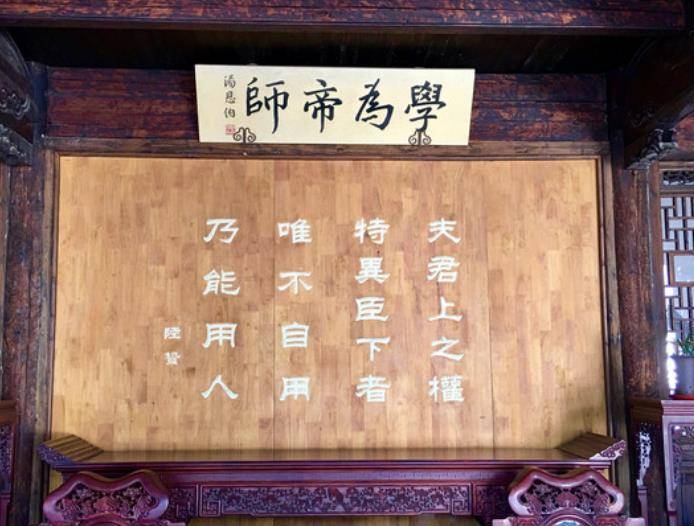 學為帝師
湯恩伯
夫君上之權
特異臣下者
唯不自用
乃能用人
陸贄